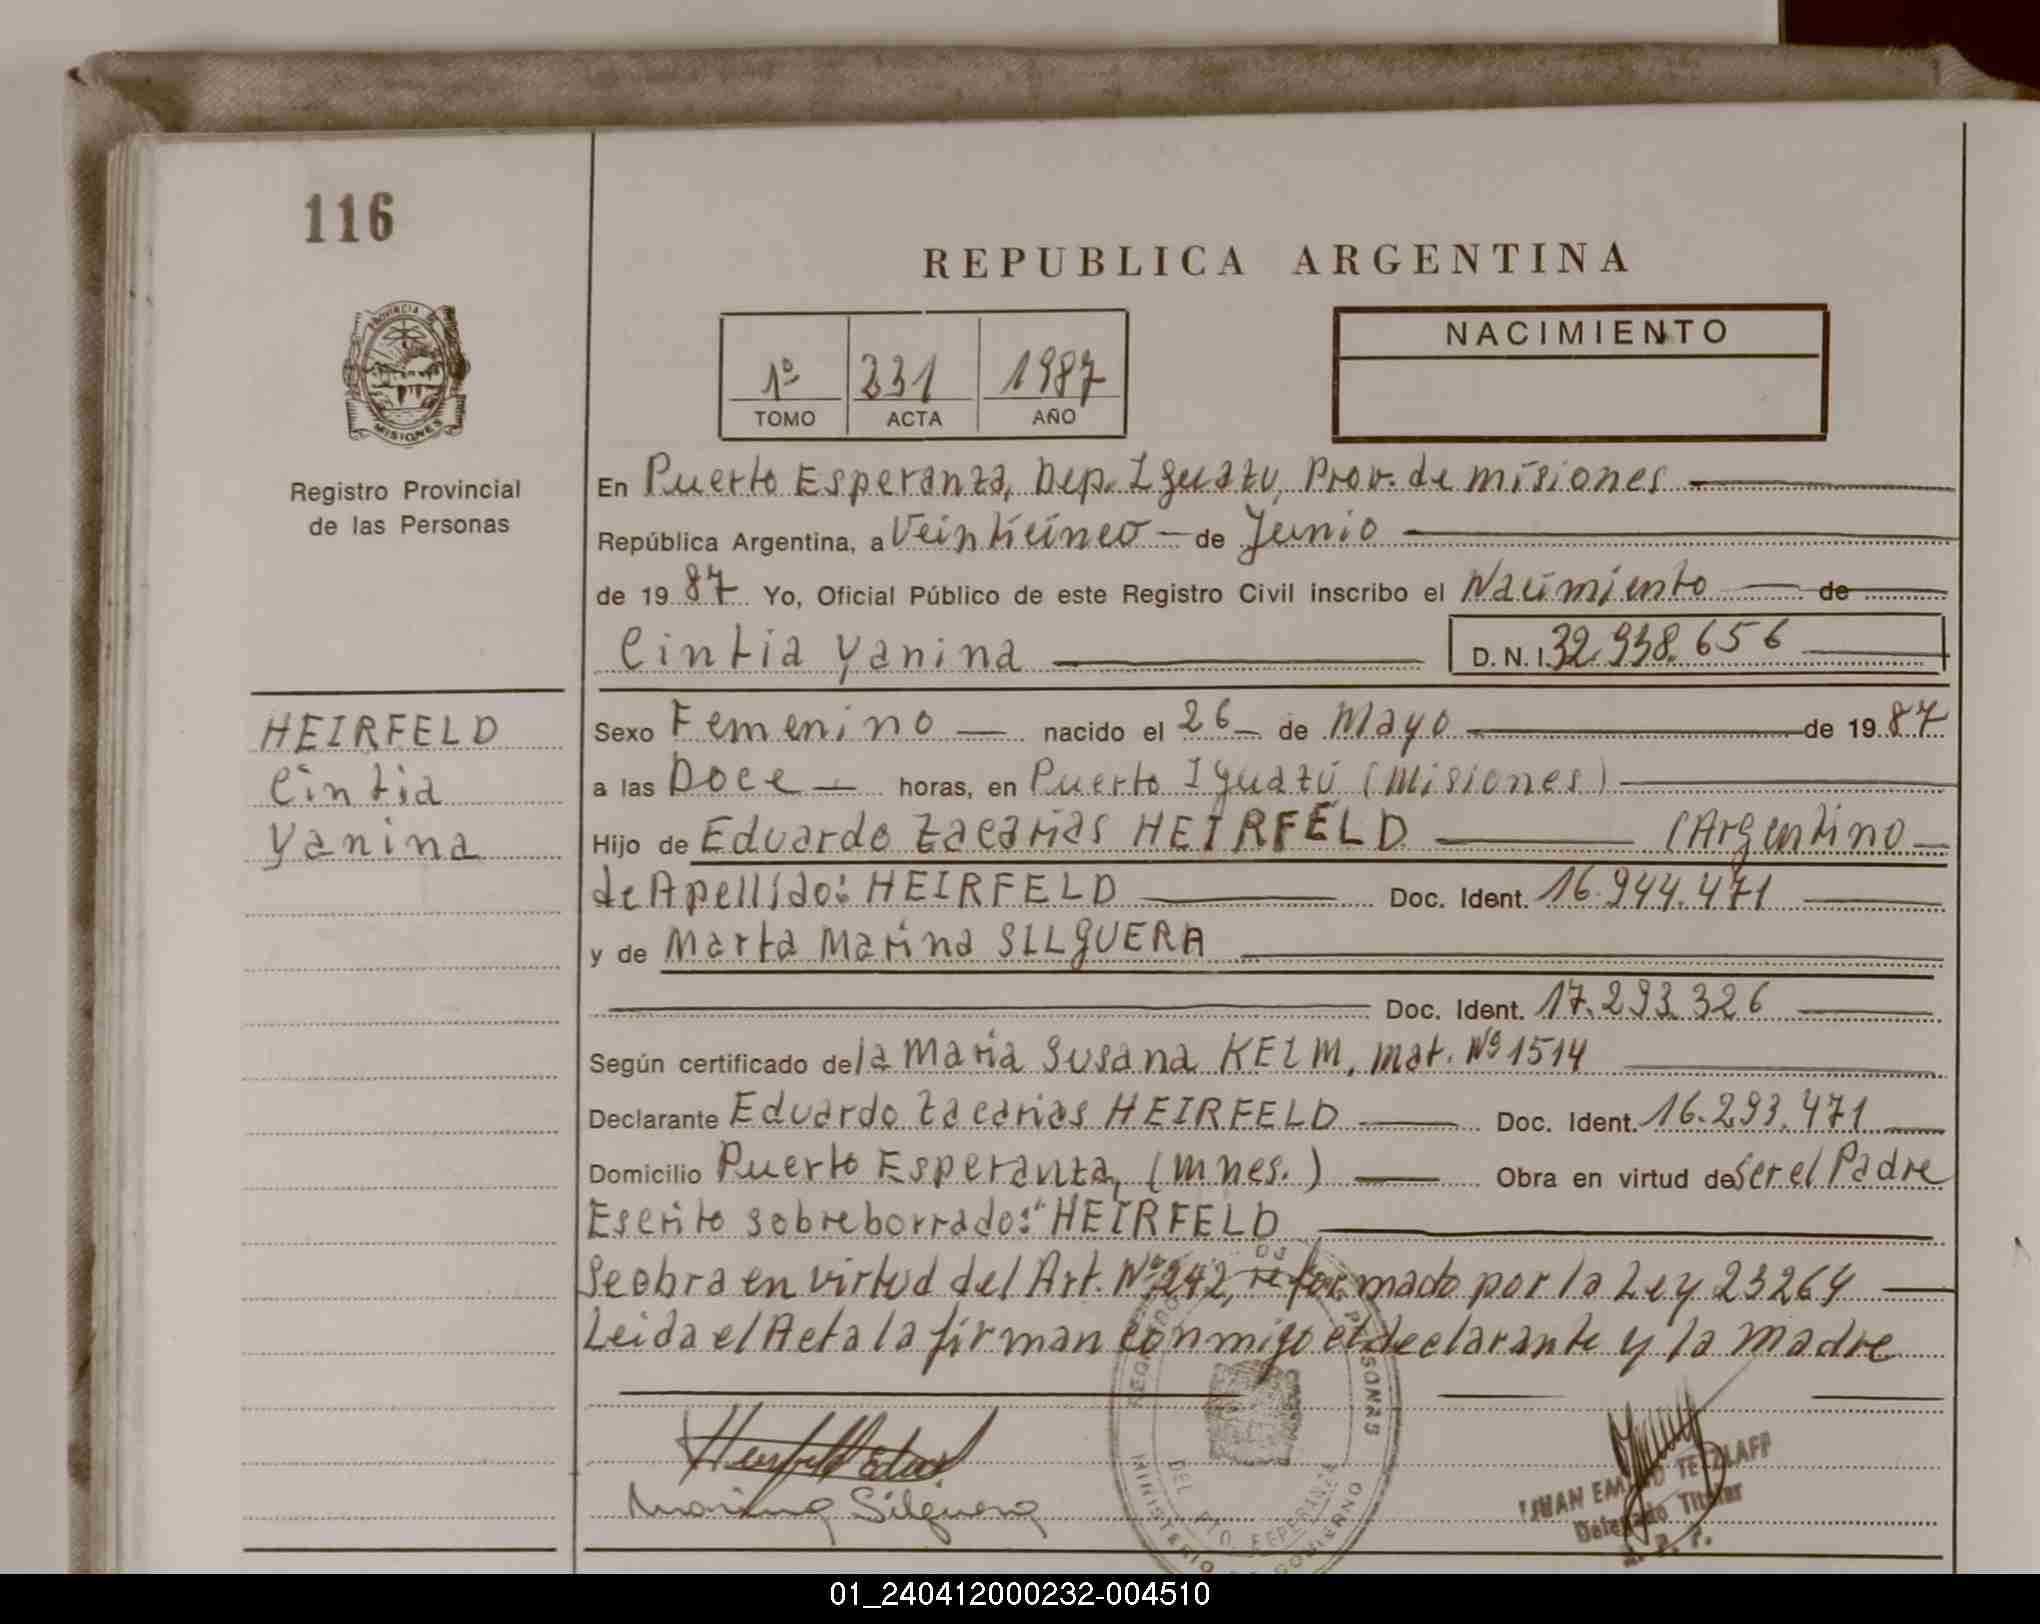 116
REPUBLICA ARGENTINA
PROVINCIA DE
MISIONES
1º 231 1987
TOMO ACTA AÑO
NACIMIENTO
Registro Provincial
de las Personas
En Puerto Esperanza, Dep. Iguazu, Prov. de misiones
República Argentina, a Veinticinco de Junio
de 1987 Yo, Oficial Público de este Registro Civil inscribo el Nacimiento de
Cintia Yanina D. N. I. 32.938.656
HEIRFELD
Cintia
Yanina
Sexo Femenino nacido el 26 de Mayo de 1987
a las Doce horas, en Puerto Iguazú (Misiones)
Hijo de Eduardo Zacarias HEIRFELD (Argentino
de Apellido: HEIRFELD Doc. Ident. 16.944.471
y de Marta Marina SILGUERA
Doc. Ident. 17.293.326
Según certificado de la Maria Susana KELM, Mat. Nº 1514
Declarante Eduardo Zacarias HEIRFELD Doc. Ident. 16.293.471
Domicilio Puerto Esperanza, (Mnes.) Obra en virtud de Ser el Padre
Escrito sobreborrado: "HEIRFELD
Se obra en virtud del Art. Nº 242, reformado por la Ley 23264
Leida el Acta la firman conmigo el declarante y la madre
Marina Silguera
REGISTRO PERSONAS
DEL PTO. ESPERANZA
MINISTERIO DE GOBIERNO
JUAN TETZLAFF
Delegado Titular
01_240412000232-004510